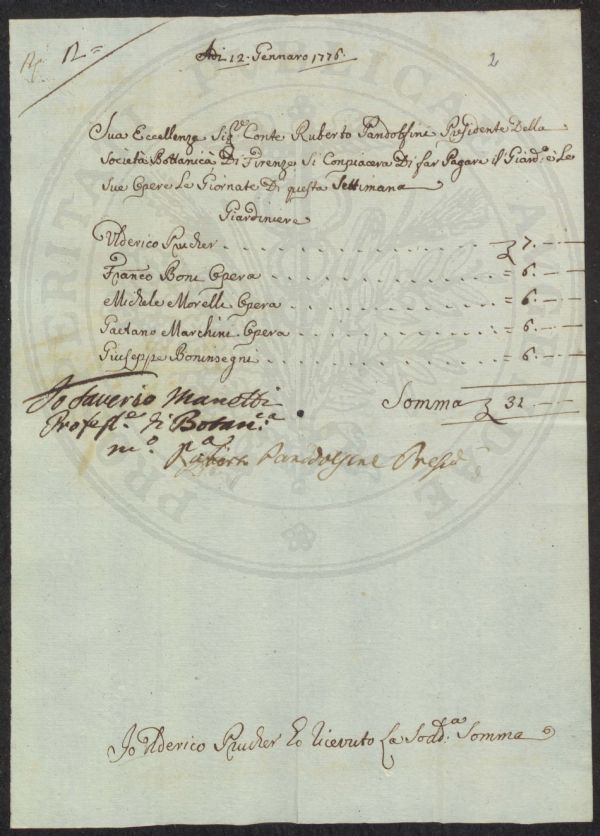 12 =
2
Adi 12. Gennaro 1776.
Sua Eccellenza Sig.re Conte Ruberto Pandolfini Presidente Della
Società Bottanica Di Firenze Si Conpiacera Di far Pagare il Giard.e e Le
Sue Opere Le Giornate Di questa Settimana
Giardiniere
Ulderico Prucher . . . . . . . . . . . . 7. — —
Franco Boni Opera . . . . . . . . . . . = 6. — —
Michele Morelli Opera . . . . . . . . . . = 6. — —
Gaetano Marchini Opera . . . . . . . . . = 6. — —
Giuseppe Boninsegni . . . . . . . . . . . = 6. — —
Somma 31 — —
Io Saverio Manetti
Profess.e di Botan.ca
m.o p.a
Ruberto Pandolfini Presid.e
Io Ulderico Prucher Ho ricevuto La Sodd.a Somma